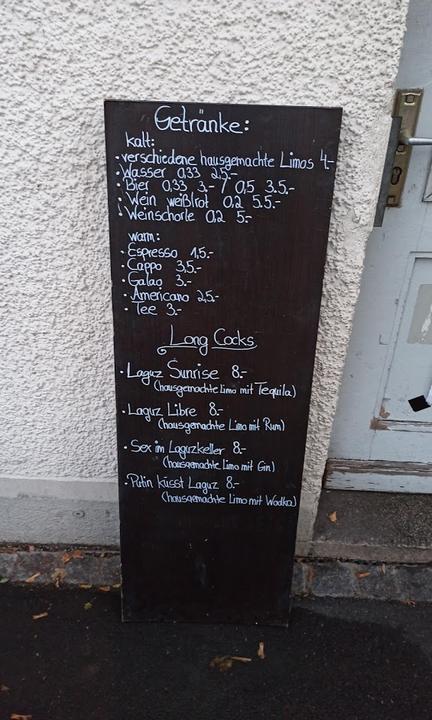 Getränke:
kalt:
· verschiedene hausgemachte Limos 4,-
· Wasser 0,33 2,5.-
· Bier 0,33 3.- / 0,5 3.5.-
· Wein weiß/rot 0,2 5.5.-
· Weinschorle 0,2 5.-
warm:
· Espresso 1,5.-
· Cappo 3,5.-
· Galao 3.-
· Americano 2,5.-
· Tee 3.-
Long Cocks
· Laguz Sunrise 8.-
(hausgemachte Limo mit Tequila)
· Laguz Libre 8.-
(hausgemachte Limo mit Rum)
· Sex im Laguzkeller 8.-
(hausgemachte Limo mit Gin)
· Putin küsst Laguz 8.-
(hausgemachte Limo mit Wodka)